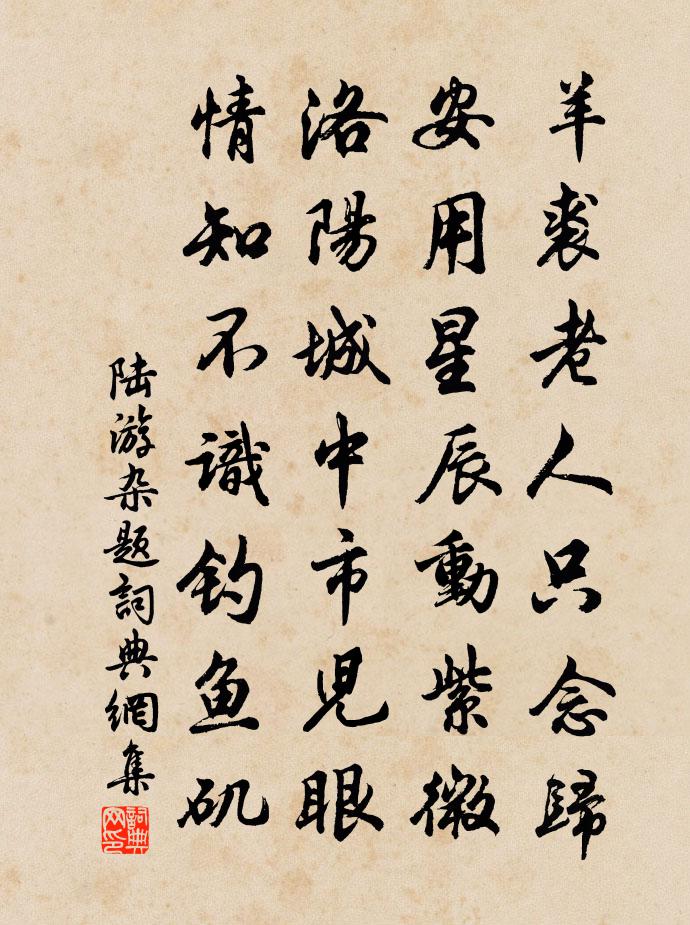 羊裘老人只念歸
安用星辰動紫微
洛陽城中市兒眼
情知不識钓鱼矶
陆游杂题詞典網集
詞典網印